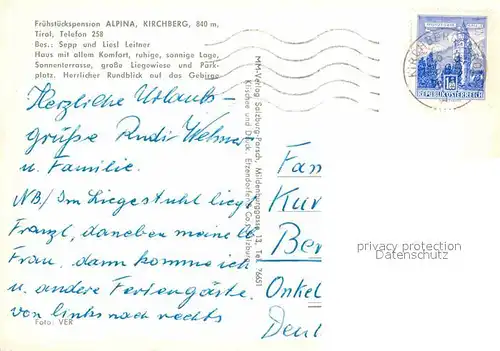 Frühstückspension ALPINA, KIRCHBERG, 840 m,
Tirol, Telefon 258
Bes.: Sepp und Liesl Leitner
Haus mit allem Komfort, ruhige, sonnige Lage,
Sonnenterrasse, große Liegewiese und Park-
platz. Herrlicher Rundblick auf das Gebirge
Herzliche Urlaubs-
grüße Rudi
u. Familie.
NB/ Im Liegestuhl liegt
Franzl, daneben meine lb
Frau, dann komme ich
u. andere Feriengäste.
von links nach rechts
Foto: VER
MM-Verlag Salzburg-Parsch, Mildenburggasse 13, Tel. 76651
Klischee und Druck: Etzendorfer & Co., Salzburg
REPUBLIK ÖSTERREICH
Fam
Kur
Ber
Onkel
Deut
privacy protection
Datenschutz